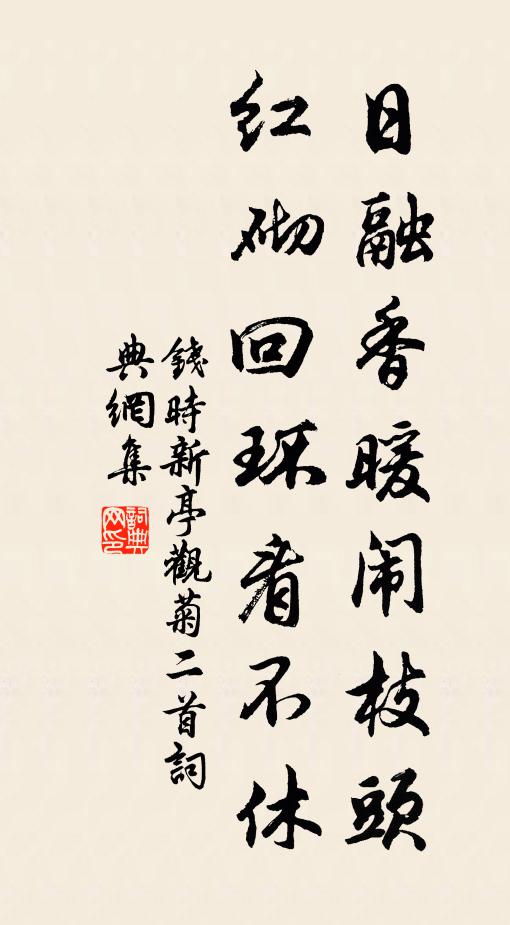 日融香暖闹枝頭
红砌回环看不休
錢時新亭觀菊二首詞
典網集
詞典
网印